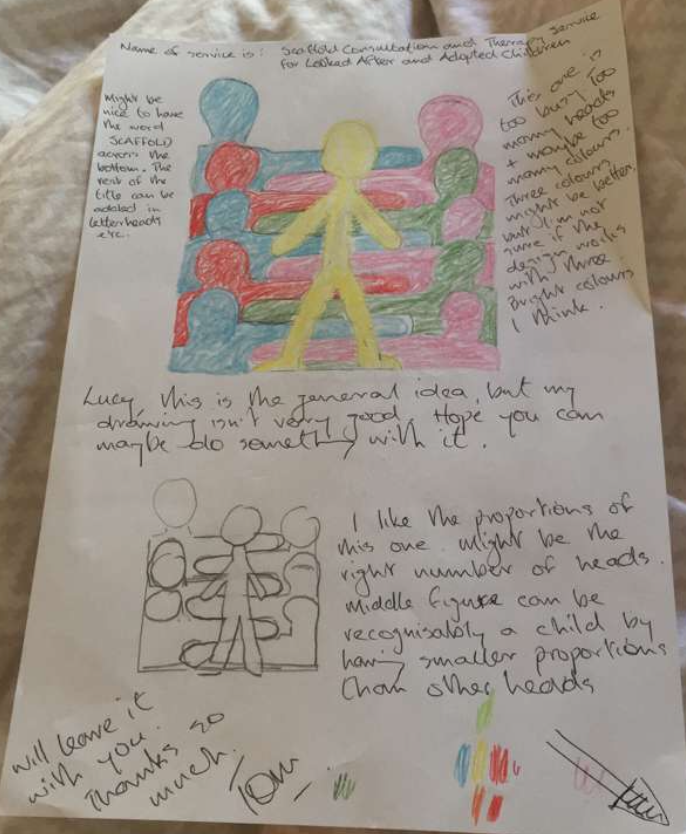 Name of service is: Scaffold Consultation and Therapy Service
for Looked After and Adopted Children
Might be
nice to have
the word
SCAFFOLD
across the
bottom. The
rest of the
title can be
added in
letterheads
etc.
This one is
too busy. Too
many heads
+ maybe too
many colours.
Three colours
might be better.
but I'm not
sure if the
design works
with three
bright colours
I think.
Lucy, this is the general idea, but my
drawing isn't very good. Hope you can
maybe do something with it.
I like the proportions of
this one. Might be the
right number of heads.
Middle figure can be
recognisably a child by
having smaller proportions
than other heads
will leave it
with you.
Thanks so
much.
Tom